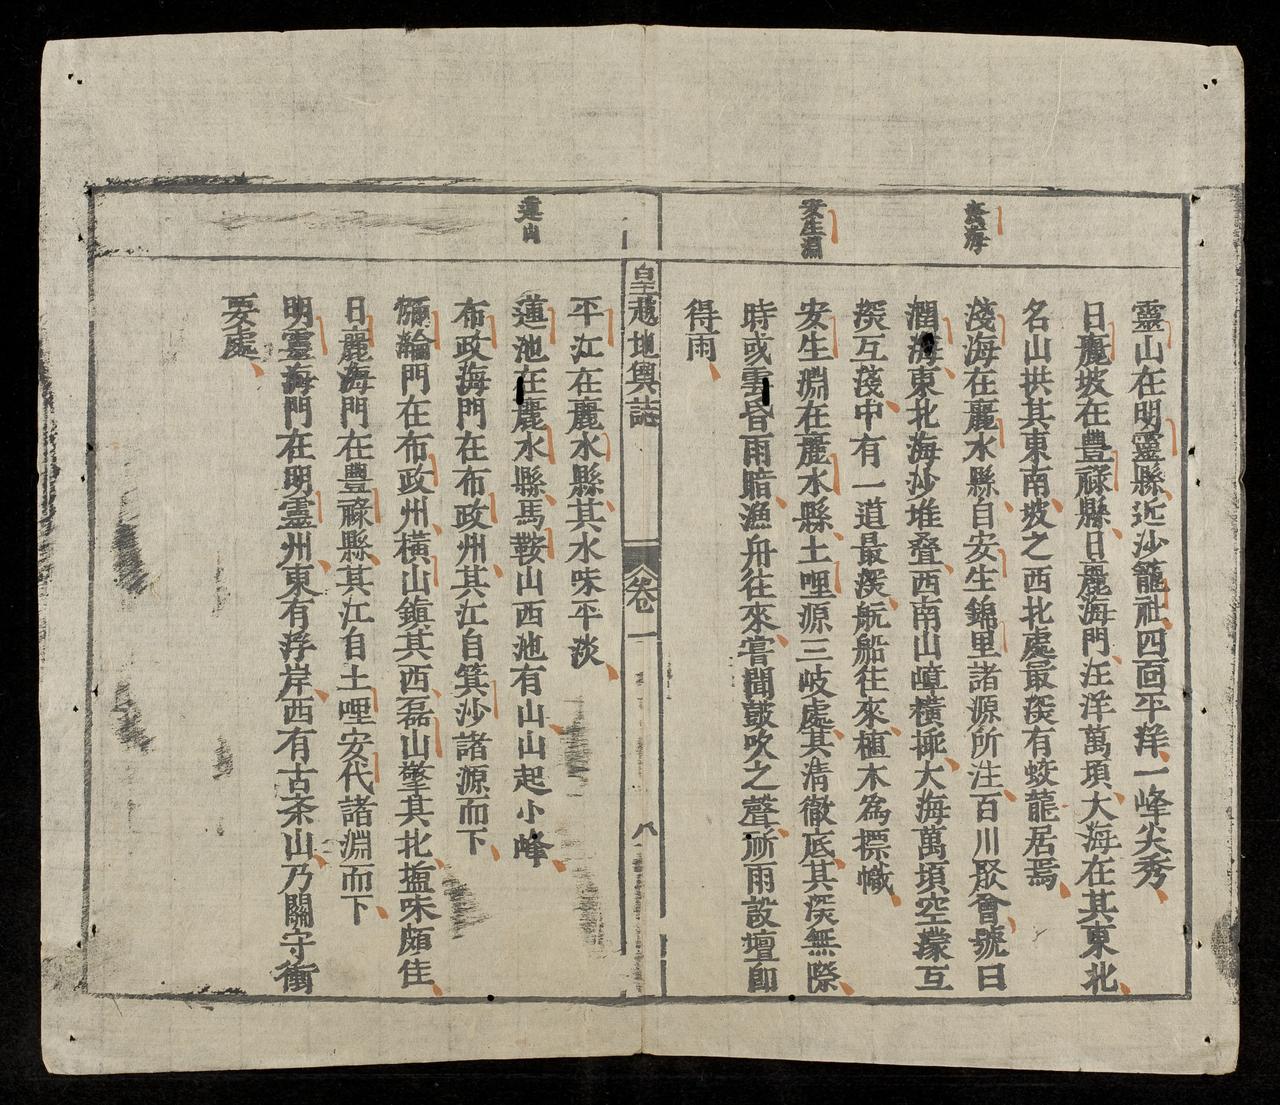 靈山在明靈縣近沙籠社四面平洋一峰尖秀
日麗坡在豐祿縣日麗海門汪洋萬頃大海在其東北
名山拱其東南坡之西北處最深有蛟龍居焉
淺海
淺海在麗水縣自安生錦里諸源所注百川聚會號曰
海東北海沙堆叠西南山嶂橫拖大海萬頃空濛互
深互淺中有一道最深航船往來植木為標幟
安生淵
安生淵在麗水縣土哩源三岐處其清徹底其深無際
時或雲昏雨暗漁舟往來嘗聞鼓吹之聲祈雨設壇即
得雨
皇越地輿誌
卷一
八
平江在麗水縣其水味平淡
蓮山
蓮池在麗水縣馬鞍山西池有山山起小峰
布政海門在布政州其江自箕沙諸源而下
彌輪門在布政州橫山鎮其西磊山擎其北塩味頗佳
日麗海門在豐祿縣其江自土哩安代諸淵而下
明靈海門在明靈州東有浮岸西有古条山乃關守衝
要處